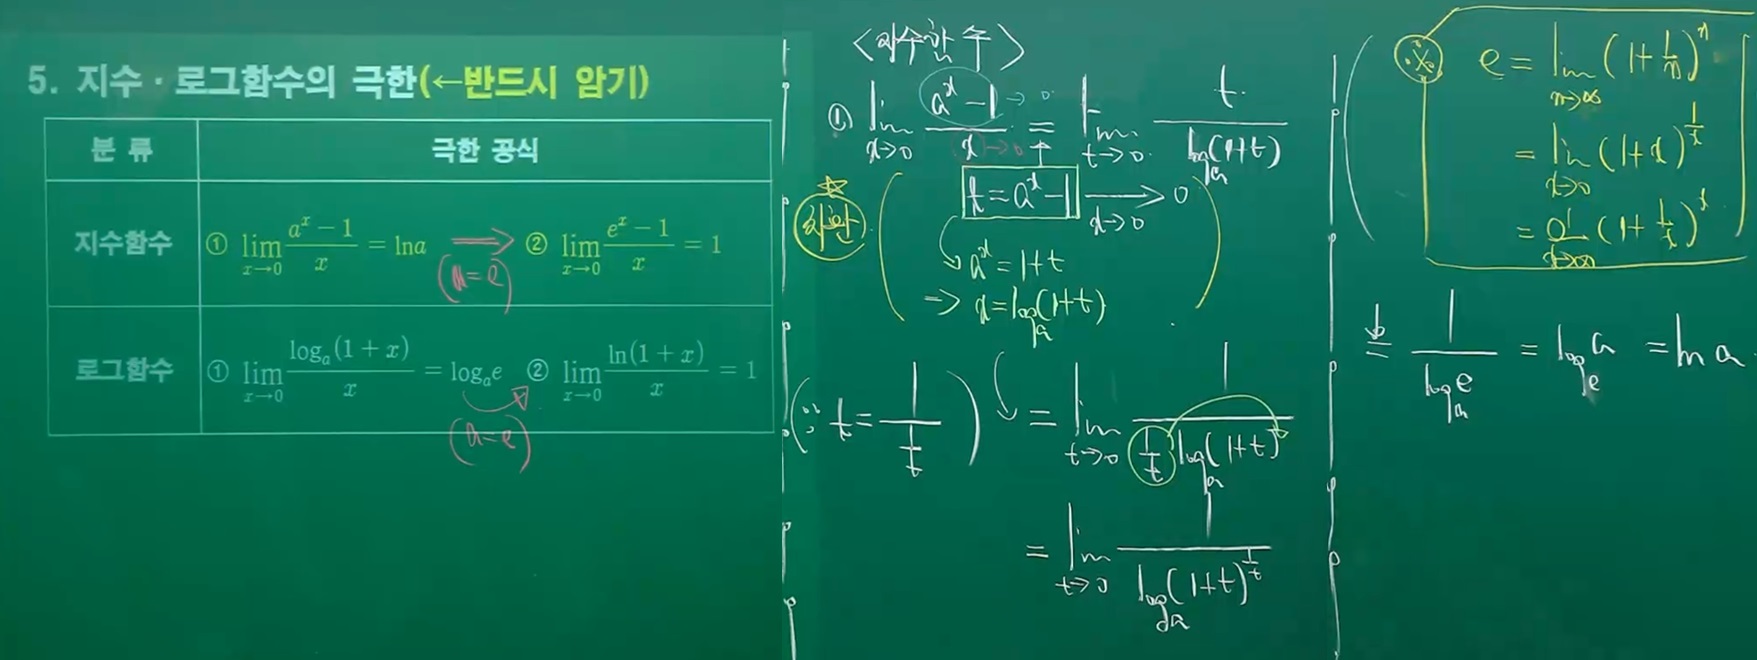 5. 지수·로그함수의 극한(←반드시 암기)
분 류 극한 공식
지수함수 ① lim x→0 (a^x − 1)/x = lna ⟶ ② lim x→0 (e^x − 1)/x = 1
(a=e)
로그함수 ① lim x→0 log_a(1+x)/x = log_a e ② lim x→0 ln(1+x)/x = 1
(a=e)
<지수함수>
① lim x→0 (a^x − 1)/x = lim t→0 t/log_a(1+t)
→0
→0 ↑
☆ t = a^x − 1 ⟶ x→0 0
치환
a^x = 1+t
⇒ x = log_a(1+t)
(∵ t = 1/(1/t)) = lim t→0 1/((1/t) log_a(1+t))
= lim t→0 1/(log_a(1+t)^(1/t))
※ e = lim n→∞ (1+1/n)^n
= lim x→0 (1+x)^(1/x)
= lim x→∞ (1+1/x)^x
= 1/(log_a e) = log_e a = ln a